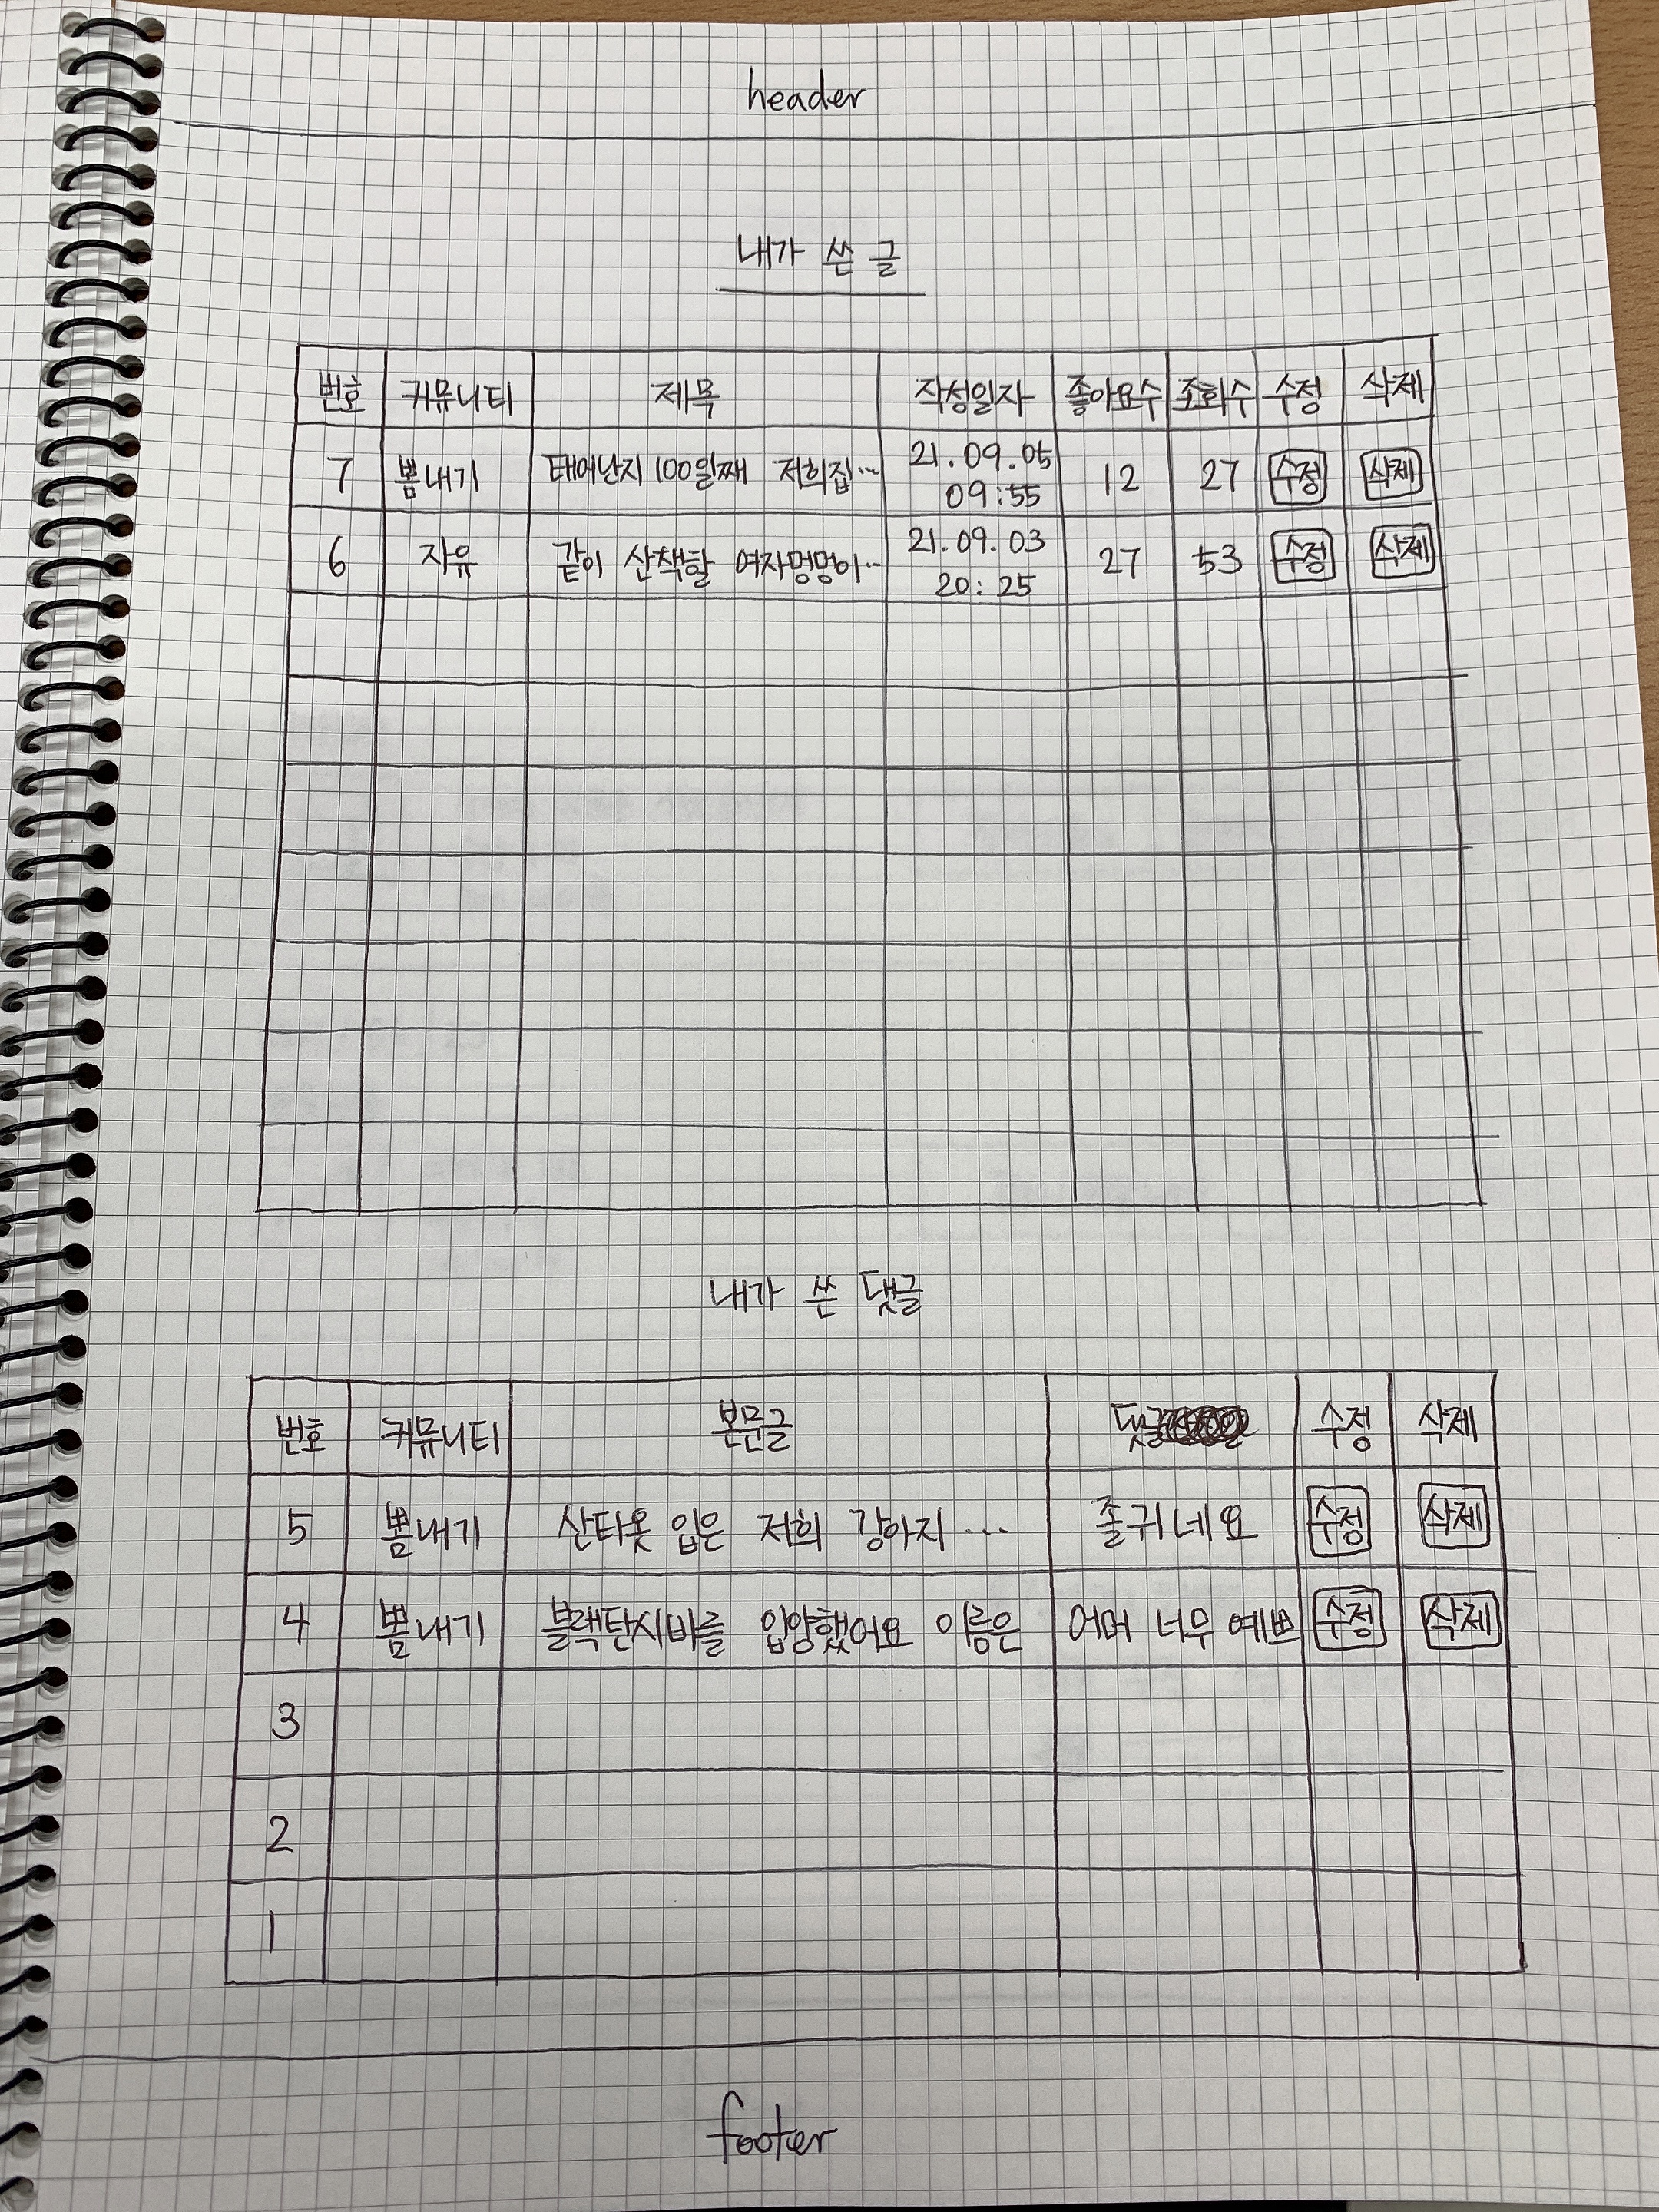 header
내가 쓴 글
번호 커뮤니티 제목 작성일자 좋아요수 조회수 수정 삭제
7 뽐내기 태어난지 100일째 저희집... 21.09.05 09:55 12 27 수정 삭제
6 자유 같이 산책할 여자멍멍이.. 21.09.03 20:25 27 53 수정 삭제
내가 쓴 댓글
번호 커뮤니티 본문글 댓글 수정 삭제
5 뽐내기 산타옷 입은 저희 강아지 ... 졸귀네요 수정 삭제
4 뽐내기 블랙탄시바를 입양했어요 이름은 어머 너무 예쁘 수정 삭제
3
2
1
footer